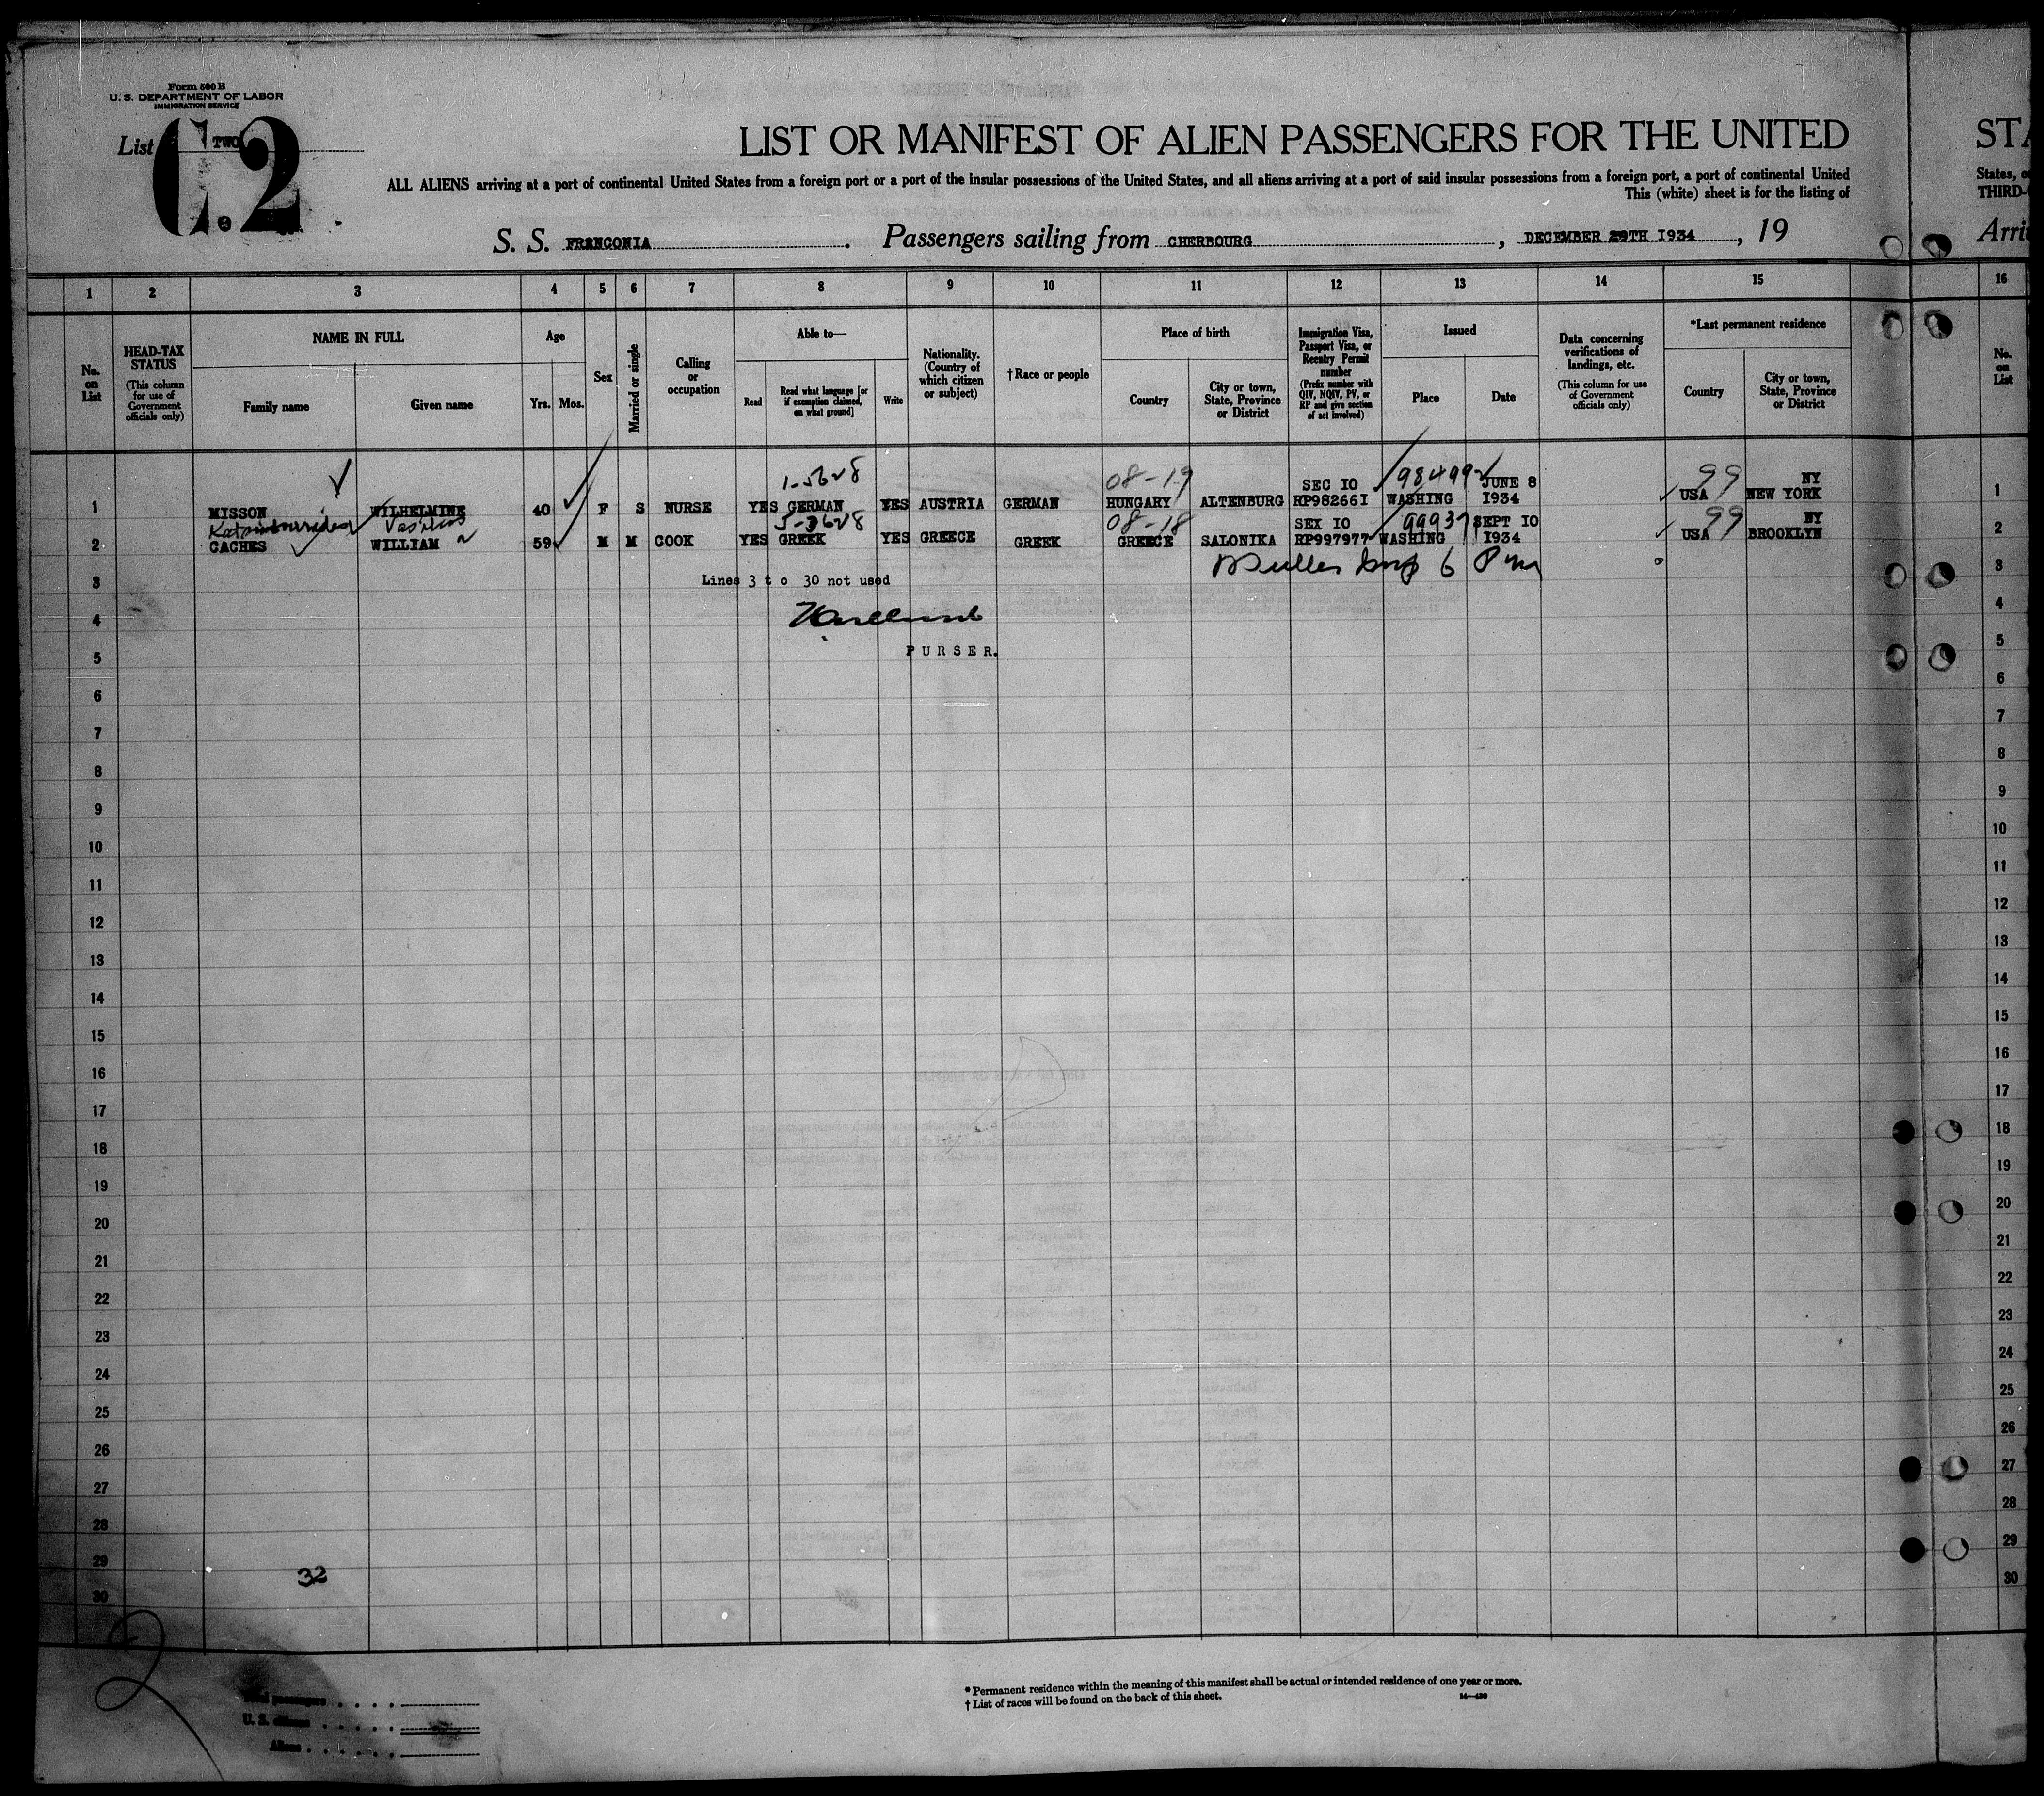 Form 500 B
U. S. DEPARTMENT OF LABOR
IMMIGRATION SERVICE
List TWO
C.2
LIST OR MANIFEST OF ALIEN PASSENGERS FOR THE UNITED
STA
ALL ALIENS arriving at a port of continental United States from a foreign port or a port of the insular possessions of the United States, and all aliens arriving at a port of said insular possessions from a foreign port, a port of continental United
States, o
This (white) sheet is for the listing of
THIRD-
S. S. FRANCONIA . Passengers sailing from CHERBOURG , DECEMBER 29TH 1934 , 19
Arri
1 2 3 4 5 6 7 8 9 10 11 12 13 14 15 16
No. on List
HEAD-TAX STATUS (This column for use of Government officials only)
NAME IN FULL
Family name
Given name
Age
Yrs. Mos.
Sex
Married or single
Calling or occupation
Able to—
Read
Read what language [or if exemption claimed, on what ground]
Write
Nationality. (Country of which citizen or subject)
†Race or people
Place of birth
Country
City or town, State, Province or District
Immigration Visa, Passport Visa, or Reentry Permit number (Prefix number with QIV, NQIV, PV, or RP and give section of act involved)
Issued
Place
Date
Data concerning verifications of landings, etc. (This column for use of Government officials only)
*Last permanent residence
Country
City or town, State, Province or District
No. on List
1-5628 08-19 SEC IO 98499 JUNE 8 99 NY
1 MISSON WILHELMINE 40 F S NURSE YES GERMAN YES AUSTRIA GERMAN HUNGARY ALTENBURG RP98266I WASHING I934 USA NEW YORK 1
Vasilios 5-3628 08-18 SEX IO 99937 SEPT IO 99 NY
2 CACHES WILLIAM 59 M M COOK YES GREEK YES GREECE GREEK GREECE SALONIKA RP997977 WASHING I934 USA BROOKLYN 2
3 Lines 3 t o 30 not used 6 3
4 4
5 PURSER. 5
6 6
7 7
8 8
9 9
10 10
11 11
12 12
13 13
14 14
15 15
16 16
17 17
18 18
19 19
20 20
21 21
22 22
23 23
24 24
25 25
26 26
27 27
28 28
29 32 29
30 30
2
* Permanent residence within the meaning of this manifest shall be actual or intended residence of one year or more.
† List of races will be found on the back of this sheet.
14—430
passengers
U. S. citizens
Aliens